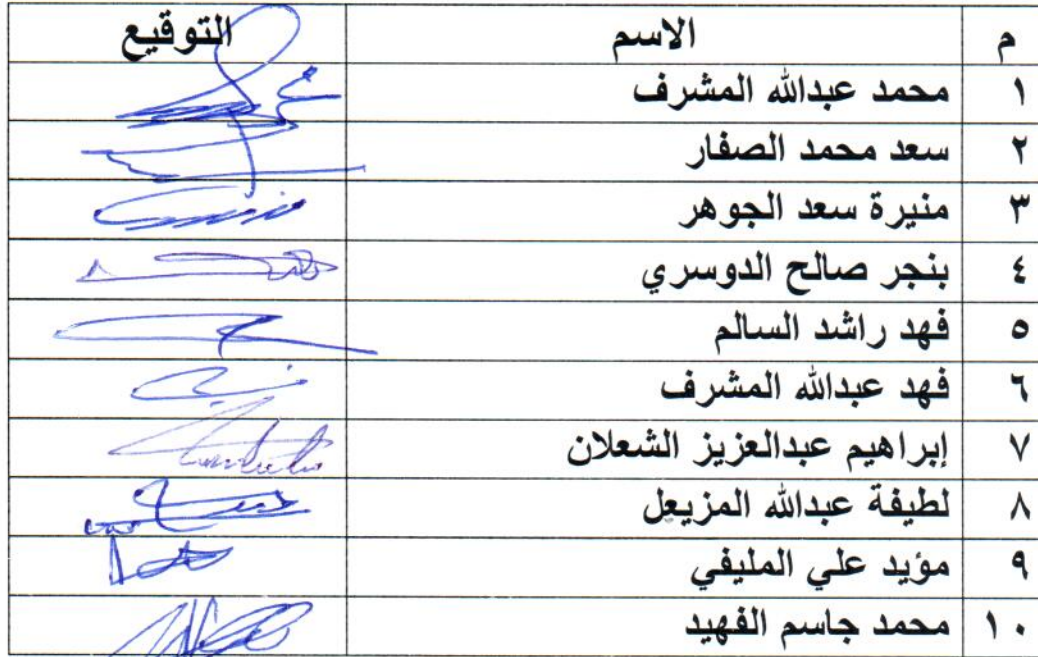 م الاسم التوقيع
١ محمد عبدالله المشرف
٢ سعد محمد الصفار
٣ منيرة سعد الجوهر
٤ بنجر صالح الدوسري
٥ فهد راشد السالم
٦ فهد عبدالله المشرف
٧ إبراهيم عبدالعزيز الشعلان
٨ لطيفة عبدالله المزيعل
٩ مؤيد علي المليفي
١٠ محمد جاسم الفهيد